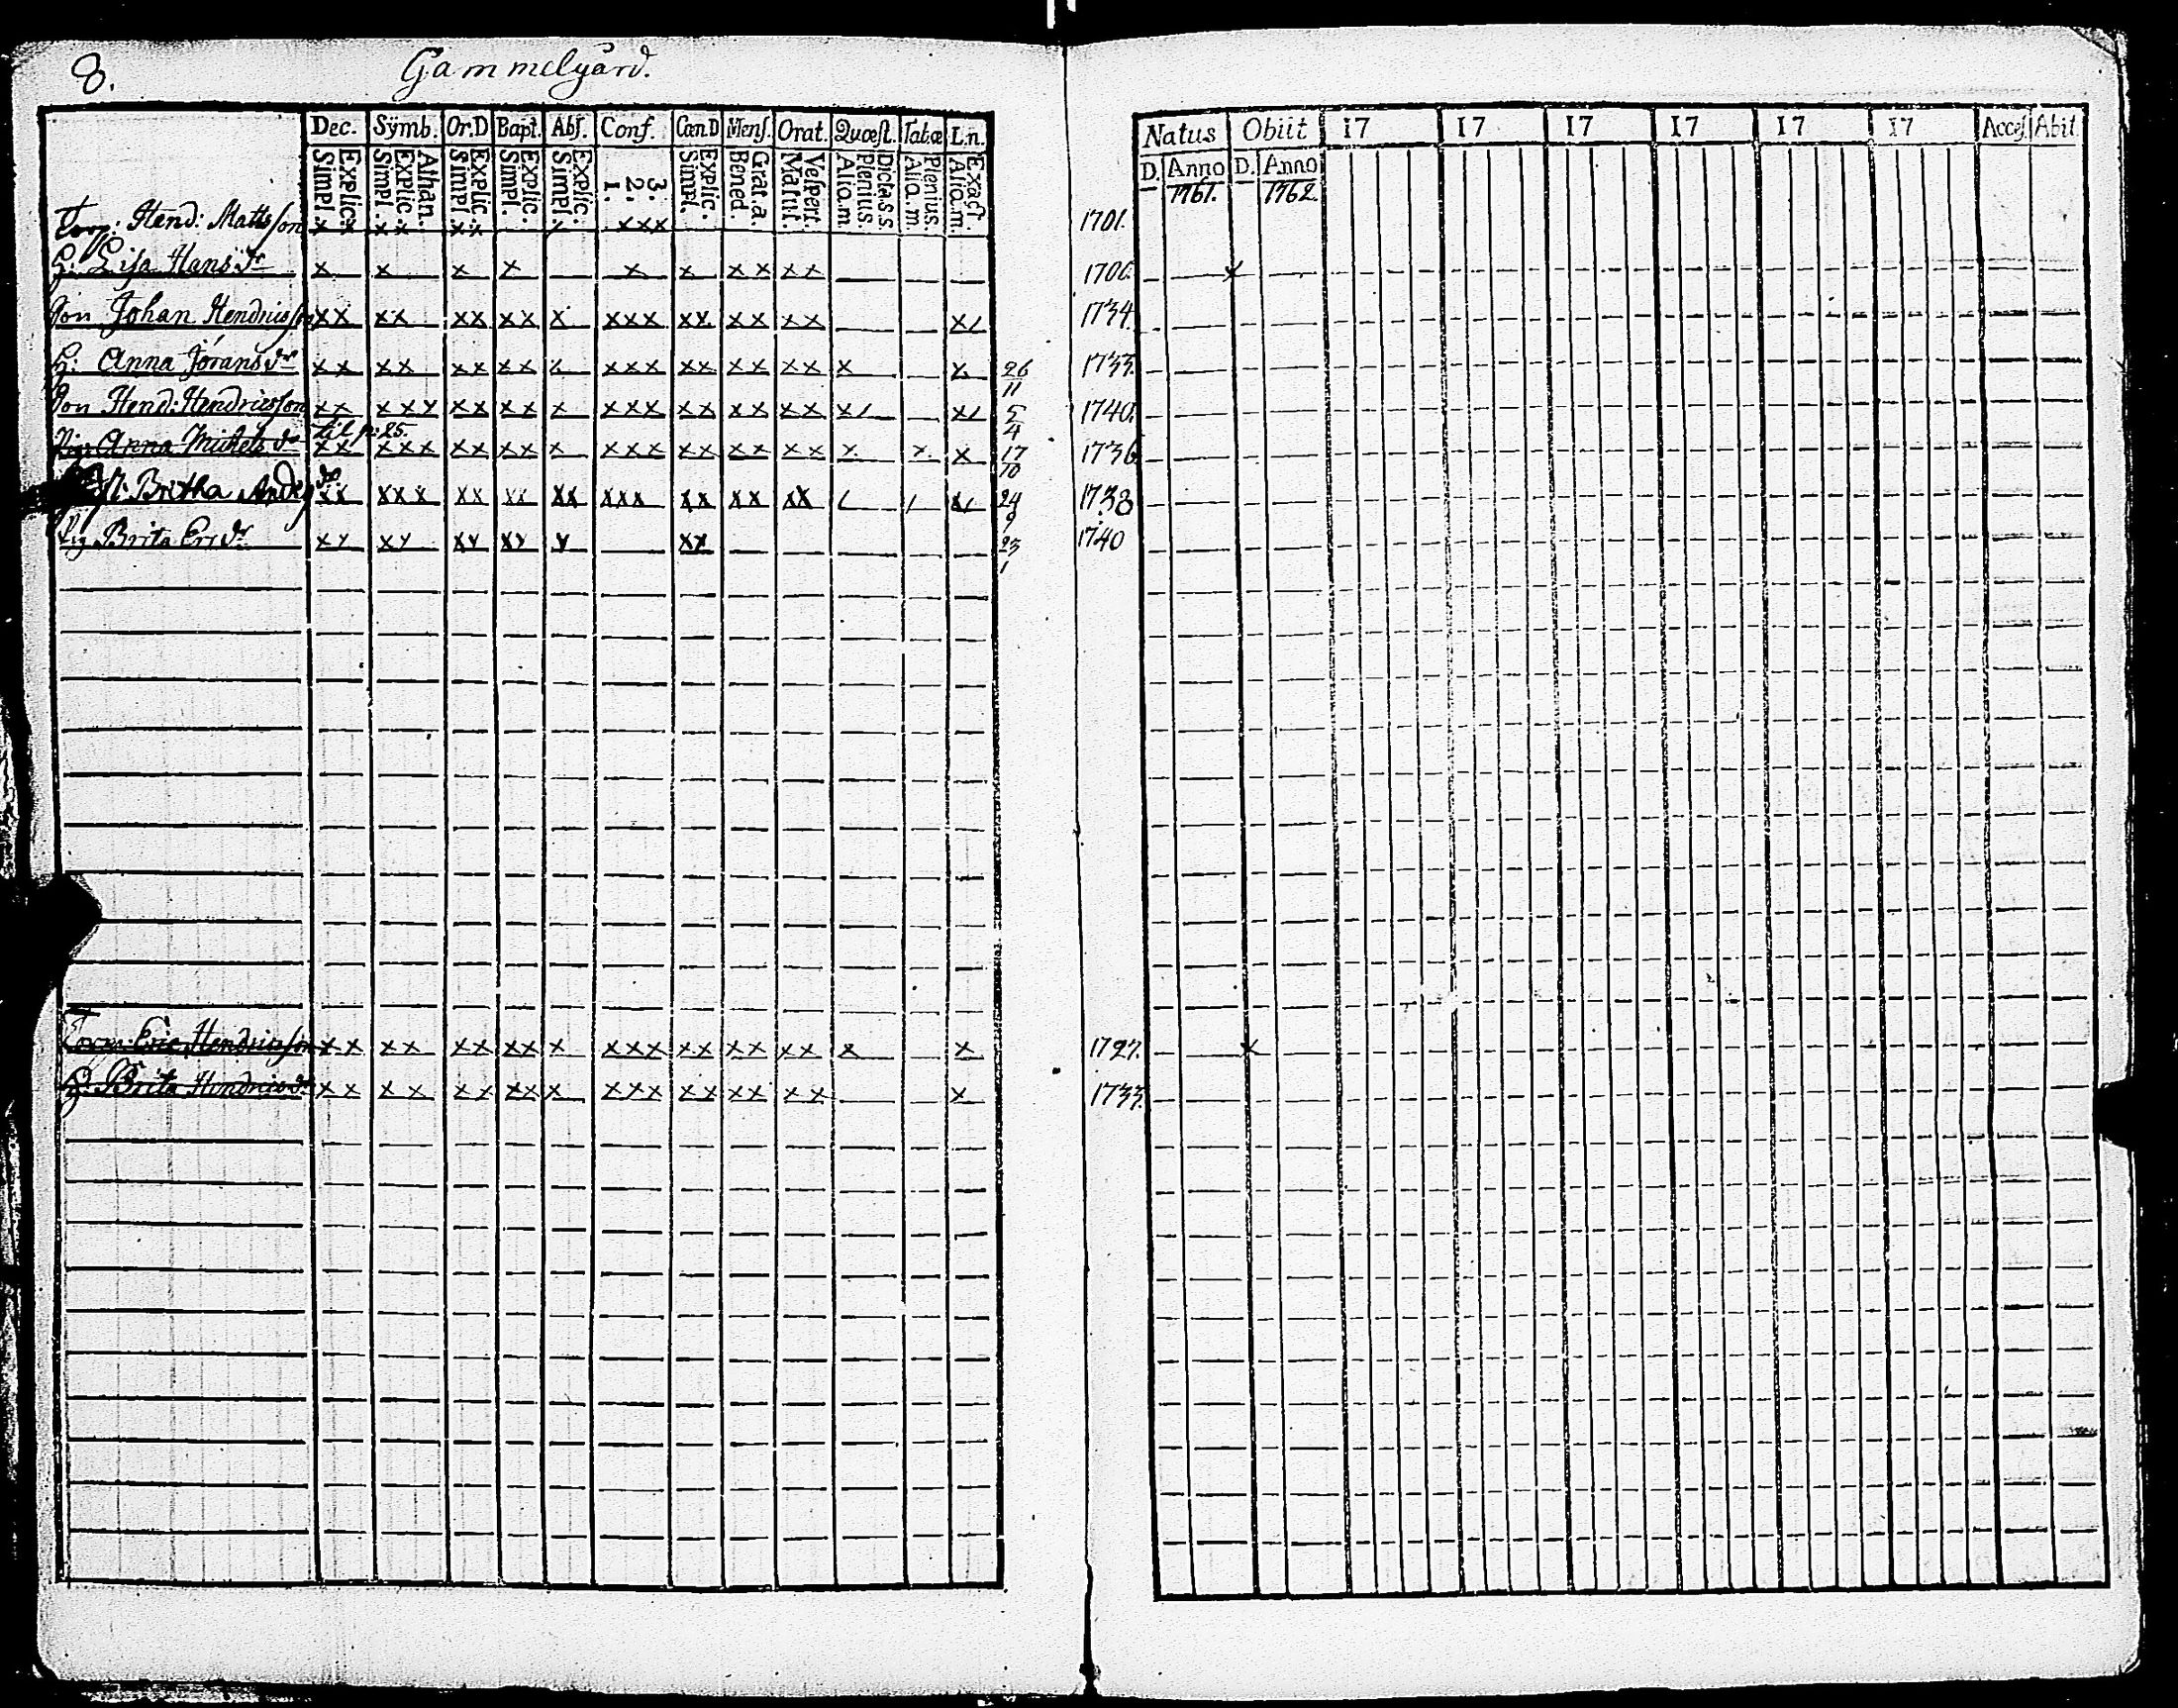 8. Gammelgård.
Dec. Symb. Or.D Bapt. Abs. Conf. Cœn.D Mens. Orat. Quæst. Tabæ L.n. Natus Obiit 17 17 17 17 17 17 Acces. Abit.
Explic. Simpl. Athan. Explic. Simpl. Explic. Simpl. Explic. Simpl. Explic. Simpl. 3. 2. 1. Explic. Simpl. Grat. a. Bened. Vespert. Matut. Dicta.s.s Plenius. Aliq.m Plenius. Aliq.m Exact. Aliq.m. D. Anno D. Anno
1761. 1762.
Torp: Hend: Mattsson x x x x x x / x x x 1701.
H: Lisa Hans dr x x x x x x x x x x 1700. x
Son Johan Hendricsson x x x x x x x x x x x x x x x x x x x / 1734.
H: Anna Jörans dr x x x x x x x x x x x x x x x x x x x x 26/11 1733.
Son Hend: Hendricsson x x x x x x x x x x x x x x x x x x x x / x / 5/4 1740.
til p: 25.
Pig: Anna Michels dr x x x x x x x x x x x x x x x x x x x x x x 17/10 1736
H: Britha Anders dr x x x x x x x x x x x x x x x x x x x / / x / 24/9 1738
Pig Brita Er: dr x x x x x x x x x x x 23/1 1740
Torp: Eric Hendricsson x x x x x x x x x x x x x x x x x x x x 1727. x
H: Brita Hendrics dr x x x x x x x x x x x x x x x x x x x 1733.